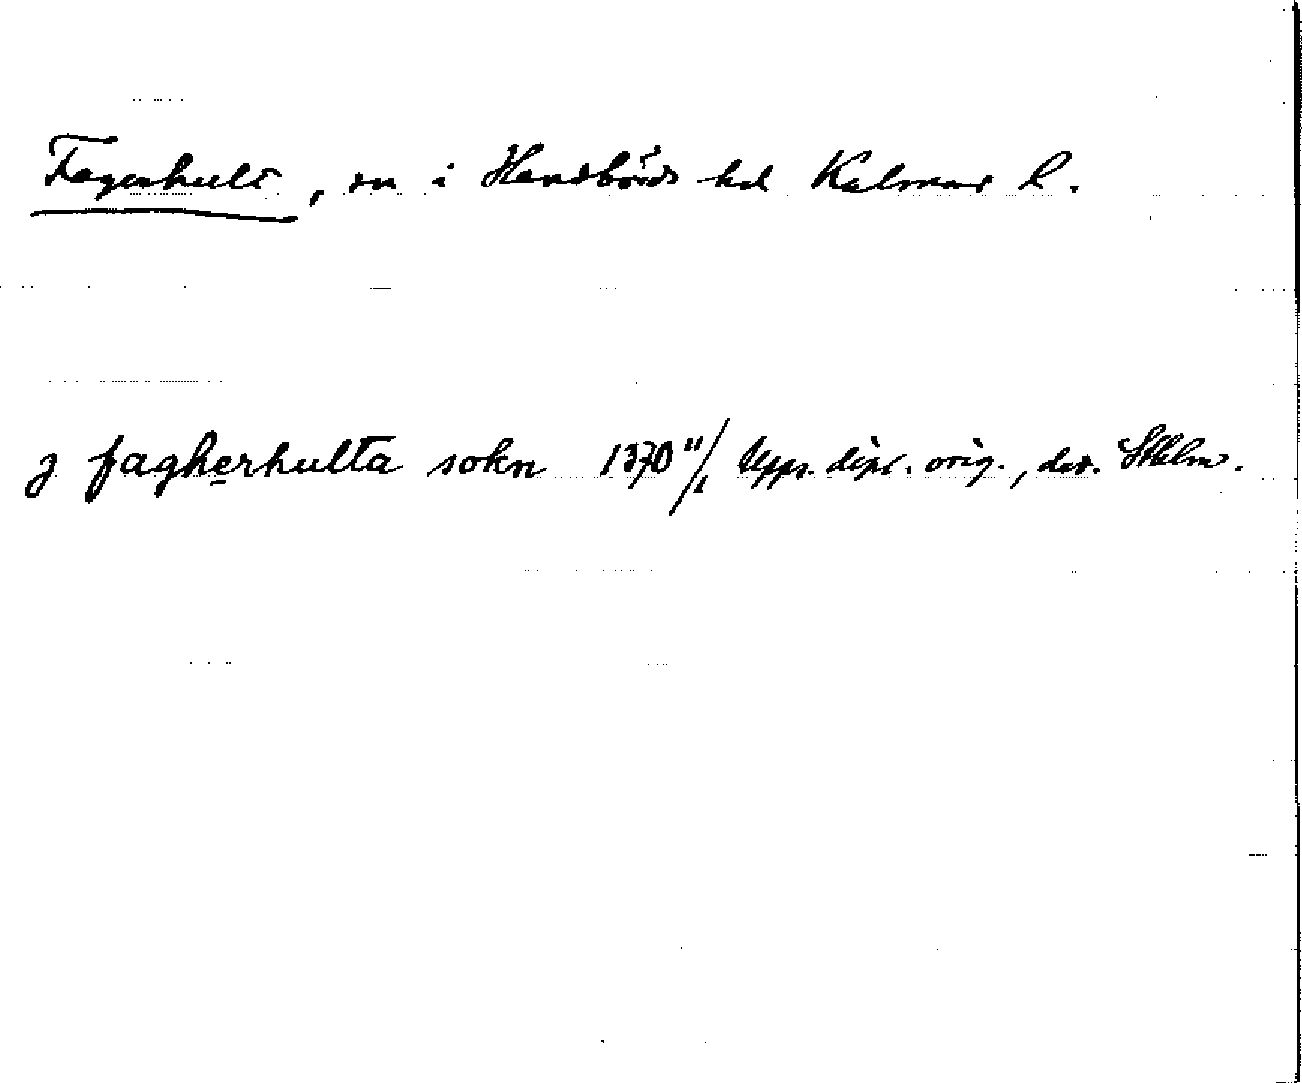 Fagerhult, sn i Handbörds hd Kalmar l.
j fagherhulta sokn 1370 11/1 Upps. dipl. orig., dat. Sthlm.